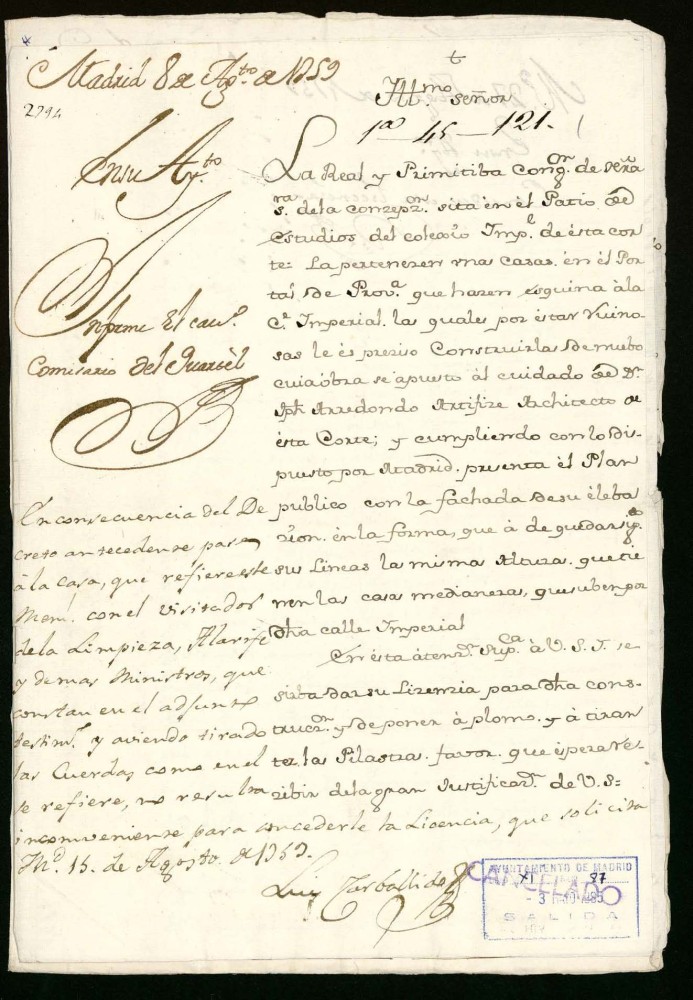 Madrid 8 de Agto. de 1759
2294
En su Ayto.
Informe el cavo.
Comisario del Quartèl
t
Illmo. señor
1ª 45-121.
La Real y Primitiba Congon. de señra
ra
s. dela conzepon. sita en êl Patio de
estudios del colexio Impl. de êsta cor
te= La pertenezen unas Casas. ên êl Por
tal de Prova. que hazen esquina àla
Ce. Imperial. las quales por êstar Ruino
sas le ês preziso Construirlas de nuebo
cuia ôbra se apuesto âl cuidado de Dn.
Jph Arredondo Artifize Architecto de
êsta Corte; y cumpliendo con lo Dis-
puesto por Madrid. presenta êl Plan
publico con la fachada de su êleba
zion. ên la forma, que â de quedar
sus Lineas la misma Altura. que tie
nen las casas medianeras, que suben por
dha calle Imperial
En êsta âtenzn. Supca. â V. S. I. se
sirba dar su Lizenzia para dha cons-
truczn. y de poner â plomo. y â tiran
tez las Pilastras. favor. que êspera re-
zibir dela gran Justificazn. de V. S=
En consecuencia del De
creto antecedente pasè
à la casa, que refiere este
Mem. con el visitador
de la Limpieza, Alarife
y demas Ministros, que
constan en el adjunto
testimo. y aviendo tirado
las Cuerdas como en el
se refiere, no resulta
inconveniente para concederle la Licencia, que solicita
Md. 15. de Agosto de 1759.
Luis Carballido
AYUNTAMIENTO DE MADRID
XI 87
CANCELADO
SALIDA